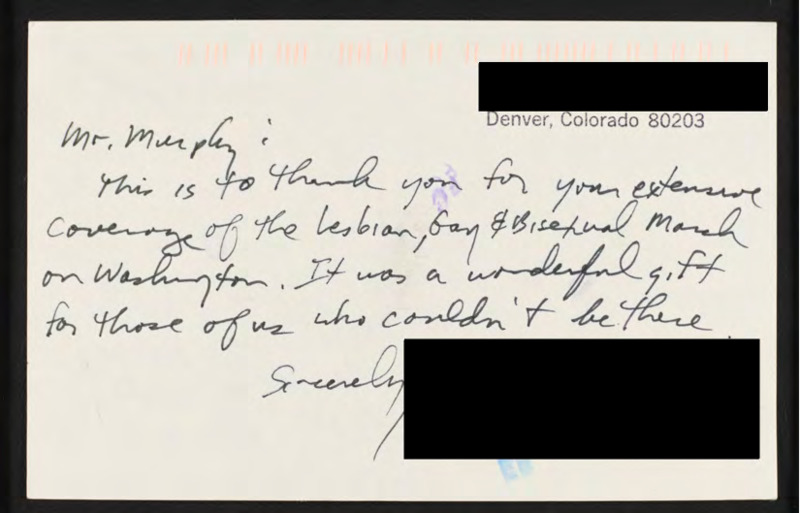 Denver, Colorado 80203
Mr. Murphy:
This is to thank you for your extensive
coverage of the Lesbian, Gay & Bisexual March
on Washington. It was a wonderful gift
for those of us who couldn't be there.
Sincerely